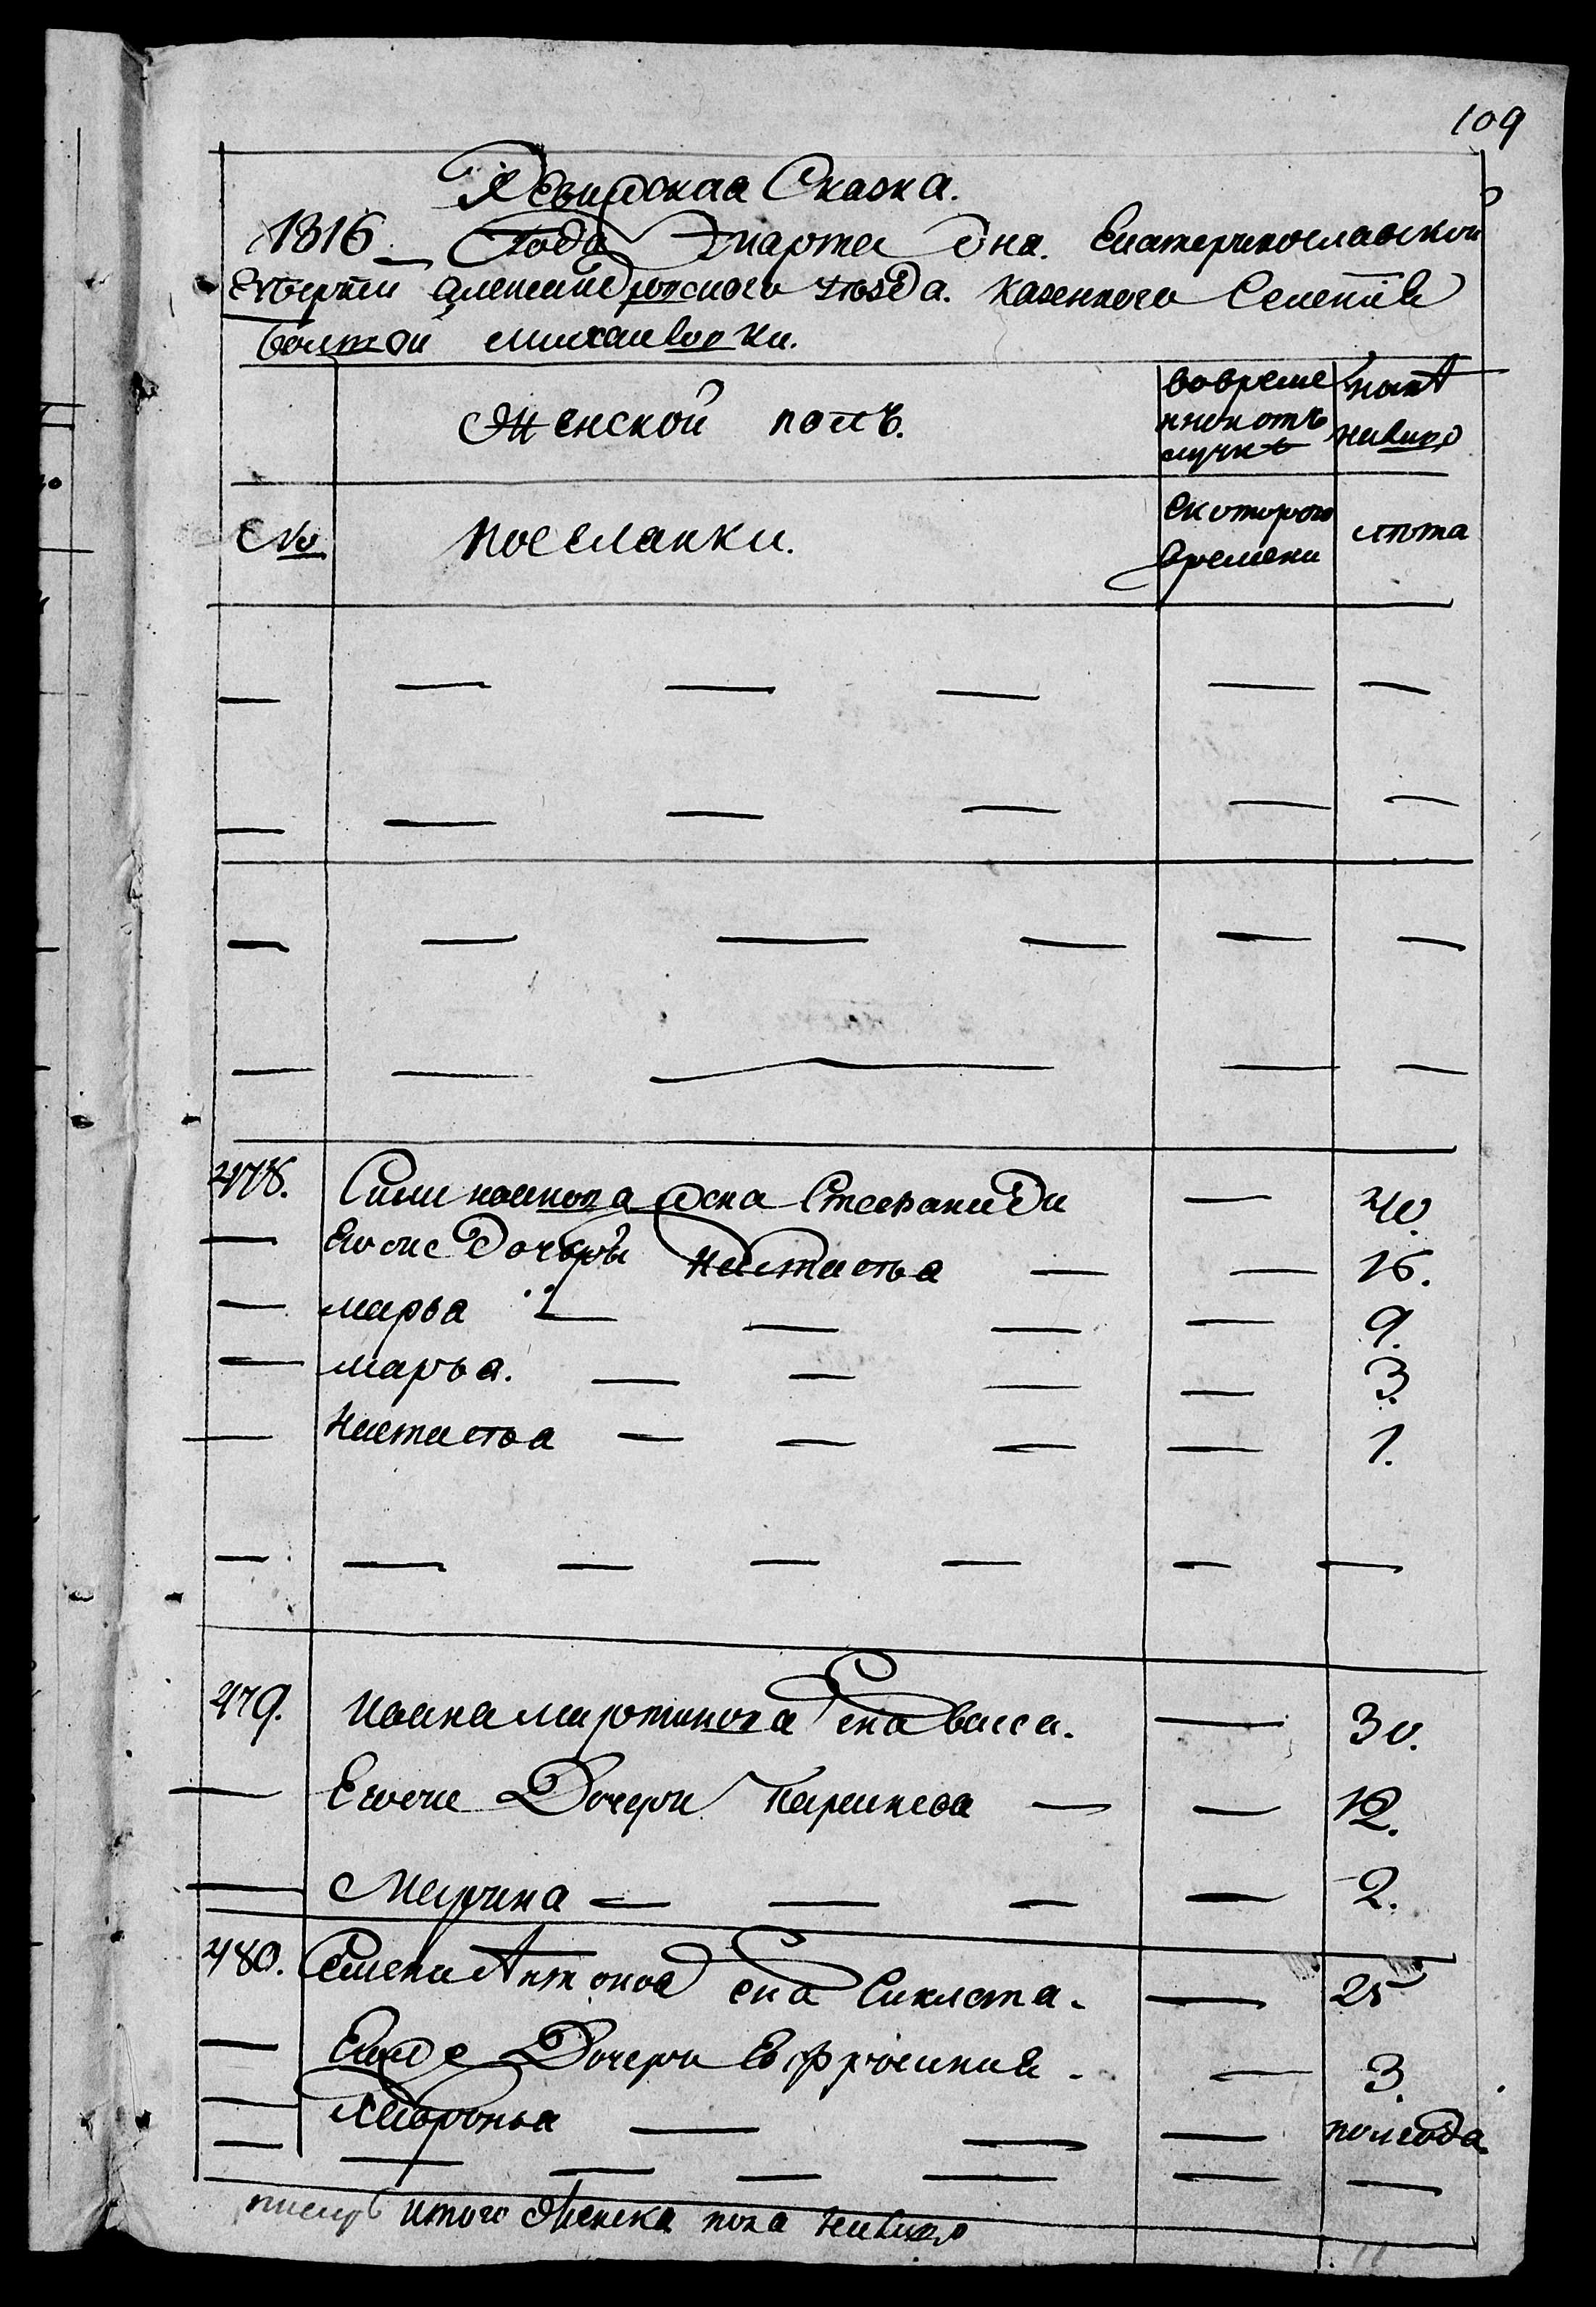 109
Ревизская Сказка.
1816 Года марта дня. Екатеринославской
Губернии Александровского уезда. казенного Селения
болшой михайловки.
Женской полъ.
вовреме
нной отъ
лучке
ныне
налицо
№
поселанки.
Скоторого
времени
лета
478.
жена Стефанида
40.
Егоже дочери Настасья
16.
марья
9.
марья.
3.
Настасья
1.
479.
Ивана мартинова жена васса.
30.
Егоже Дочери
12.
Марина
2.
480. Семена Антонова жена Сиклета.
25
Егоже Дочери Ефросиния
3.
Хавронья
полгода
итого женска пола налицо
11